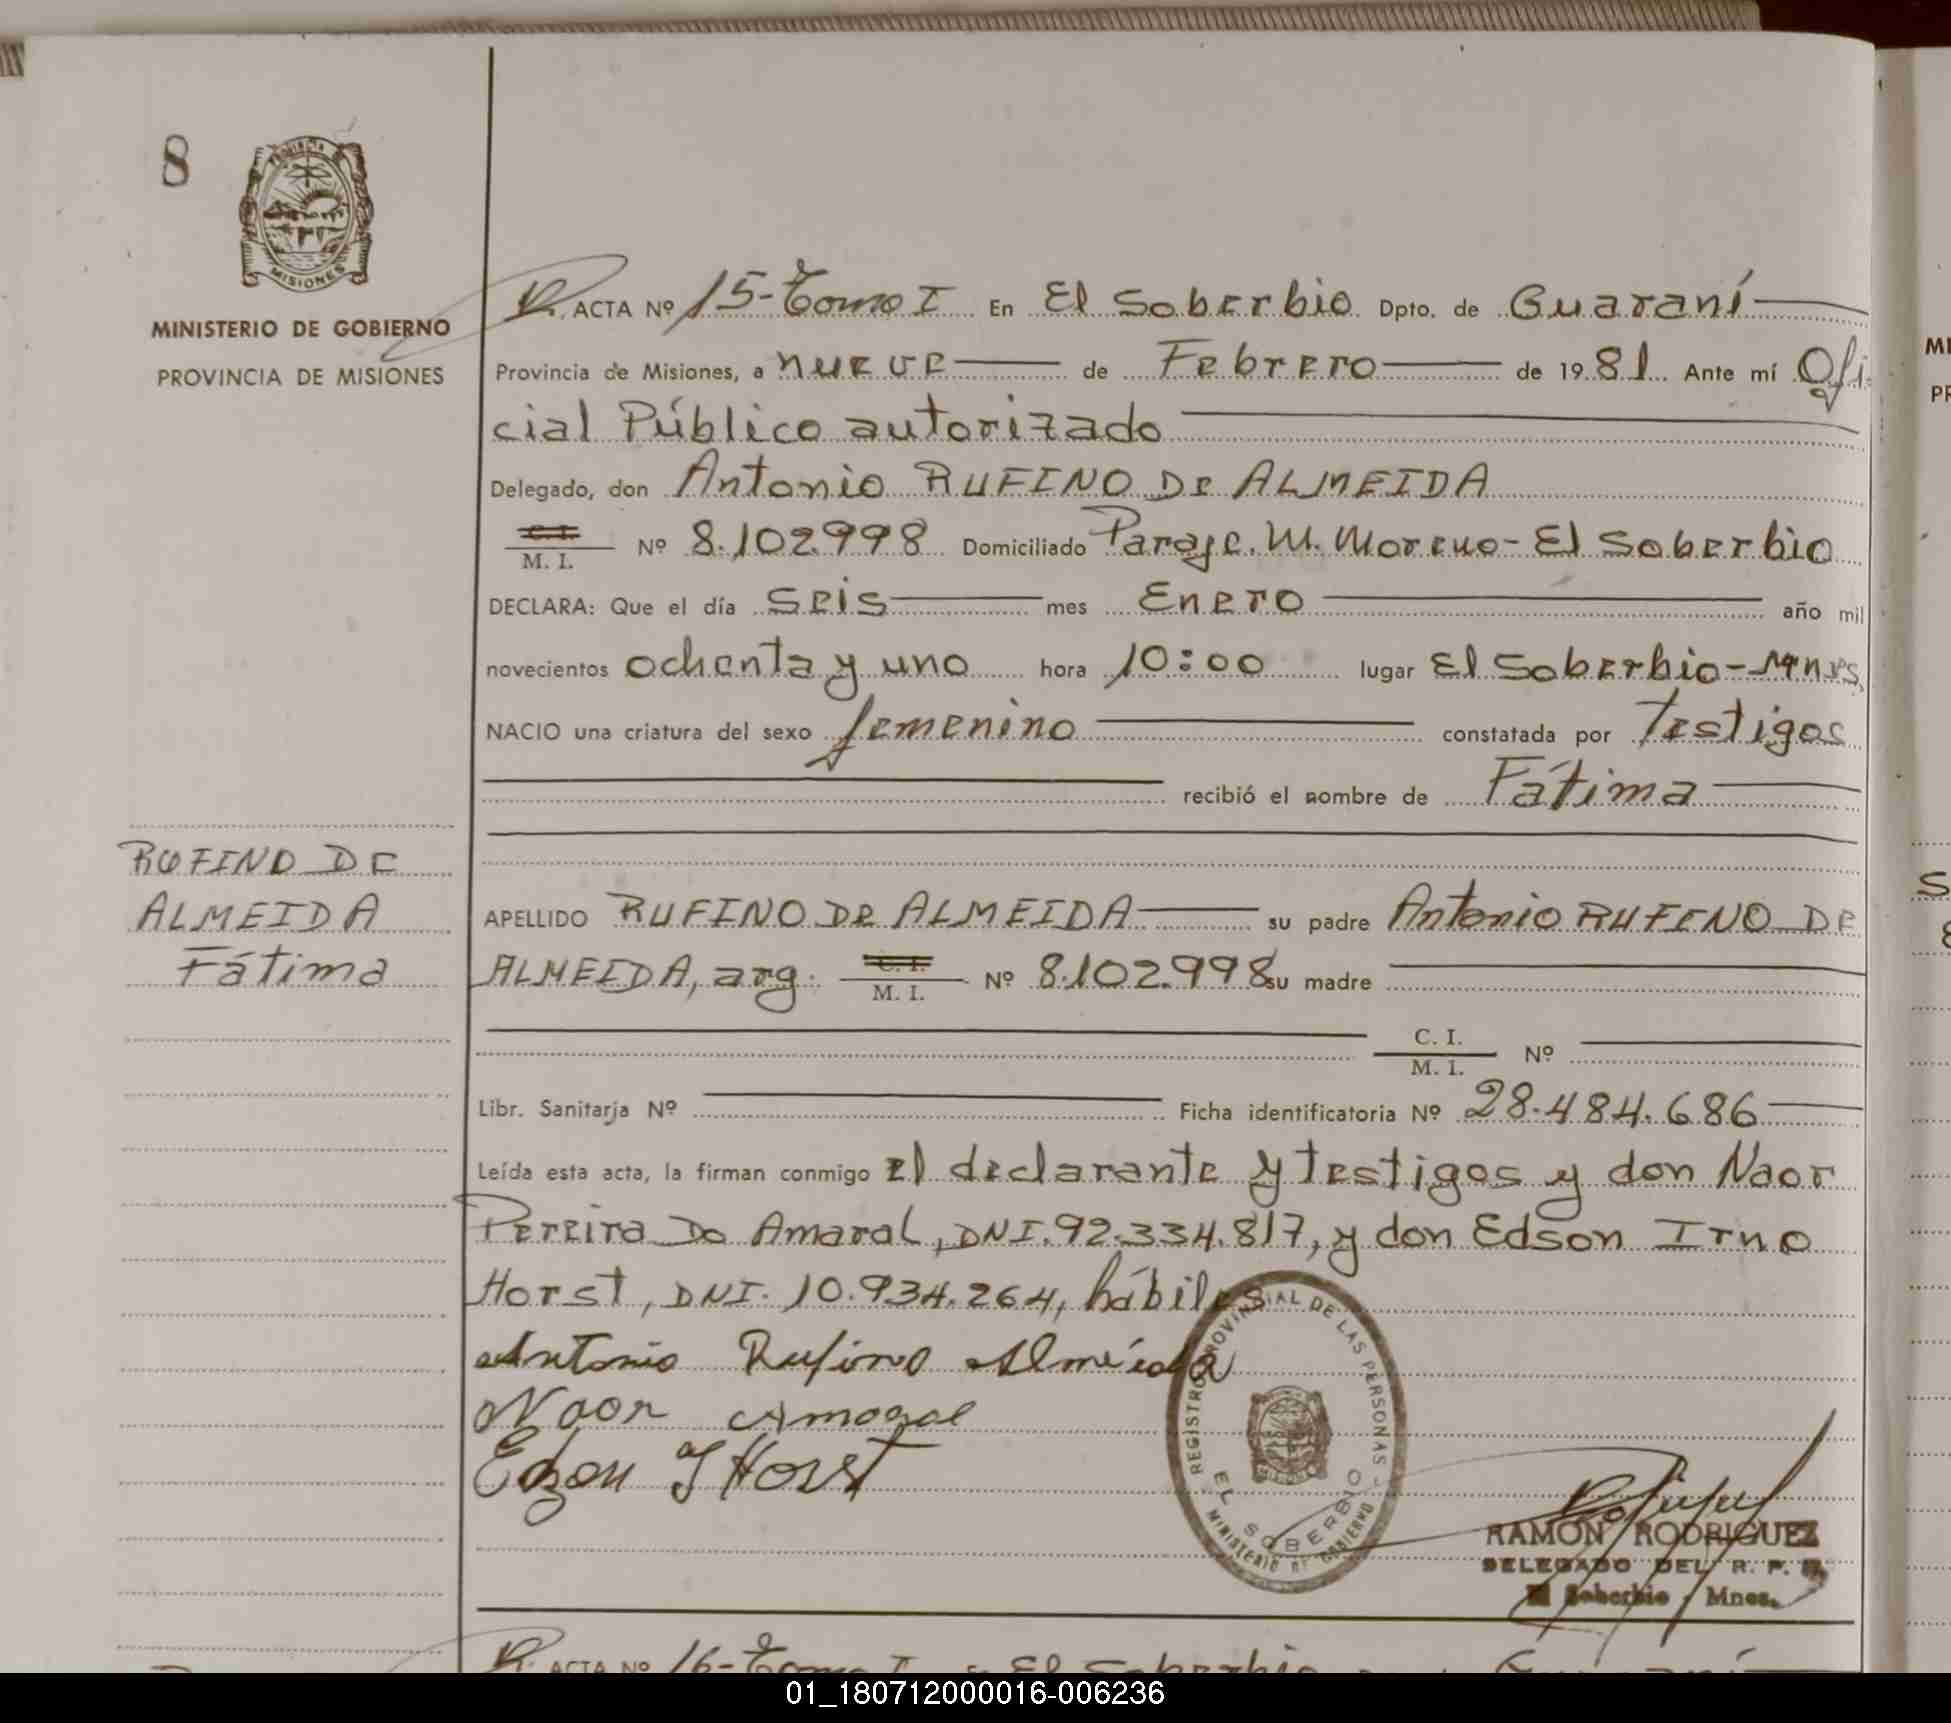 8
PROVINCIA DE
MISIONES
MINISTERIO DE GOBIERNO
PROVINCIA DE MISIONES
ACTA Nº 15-Tomo I En El Soberbio Dpto. de Guaraní
Provincia de Misiones, a nueve de Febrero de 1981. Ante mí Ofi-
cial Público autorizado
Delegado, don Antonio RUFINO DE ALMEIDA
C. I.
M. I. Nº 8.102.998 Domiciliado Paraje. M. Moreno- El Soberbio
DECLARA: Que el día seis mes Enero año mil
novecientos ochenta y uno hora 10:00 lugar El Soberbio-Mnes
NACIO una criatura del sexo femenino constatada por Testigos
recibió el nombre de Fátima
RUFINO DE
ALMEIDA
Fátima
APELLIDO RUFINO DE ALMEIDA su padre Antonio RUFINO DE
ALMEIDA, arg. C. I. M. I. Nº 8.102.998 su madre
C. I.
M. I. Nº
Libr. Sanitarja Nº Ficha identificatoria Nº 28.484.686
Leída esta acta, la firman conmigo el declarante y testigos y don Naor
Pereira Do Amaral, DNI. 92.334.817, y don Edson Irno
Horst, DNI. 10.934.264, hábiles
Antonio Rufino Alméida
Naor Amaral
Edson I Horst
REGISTRO PROVINCIAL DE LAS PERSONAS
EL SOBERBIO
MINISTERIO DE GOBIERNO
RAMON RODRIGUEZ
DELEGADO DEL R. P. P.
El Soberbio - Mnes.
ACTA Nº 16-Tomo I En El Soberbio Guaraní
01_180712000016-006236